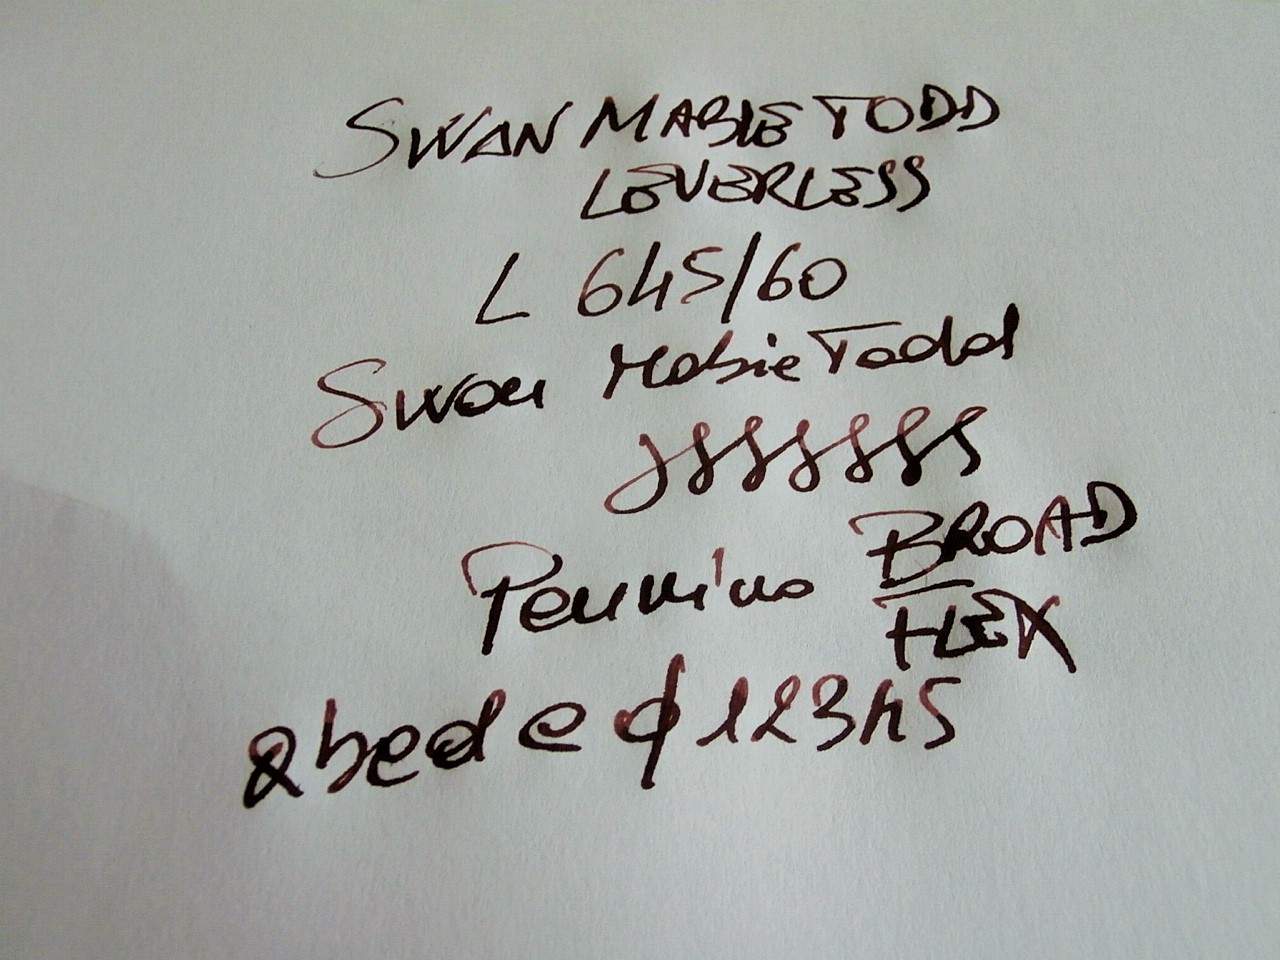 SWAN MABIE TODD
LEVERLESS
L 645/60
Swan Mabie Todd
JSSSSSSS
Pennino BROAD
FLEX
abcd e f 12345